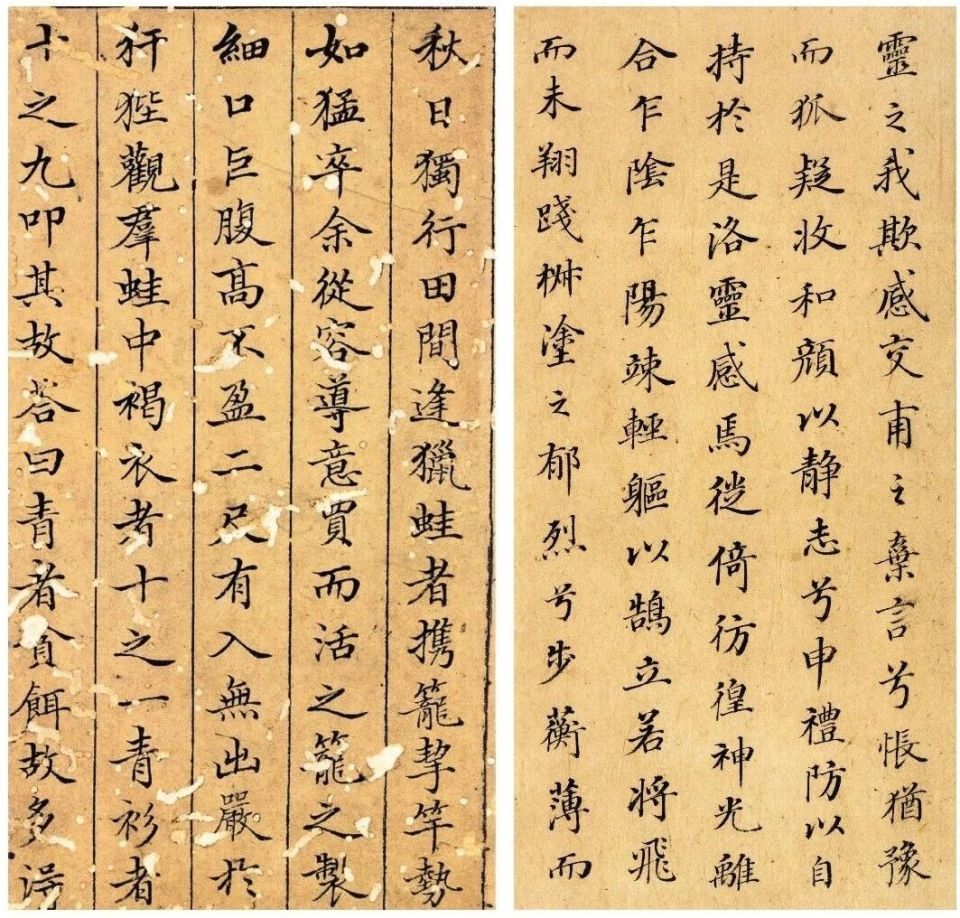 靈之我欺感交甫之棄言兮悵猶豫
而狐疑收和顔以静志兮申禮防以自
持於是洛靈感焉徙倚彷徨神光離
合乍陰乍陽竦輕軀以鵠立若將飛
而未翔踐椒塗之郁烈兮步蘅薄而
秋日獨行田間逢獵蛙者携籠挈竿勢
如猛卒余從容導意買而活之籠之製
細口巨腹高不盈二尺有入無出嚴於
犴狴觀羣蛙中褐衣者十之一青衫者
十之九叩其故荅曰青者貪餌故多得